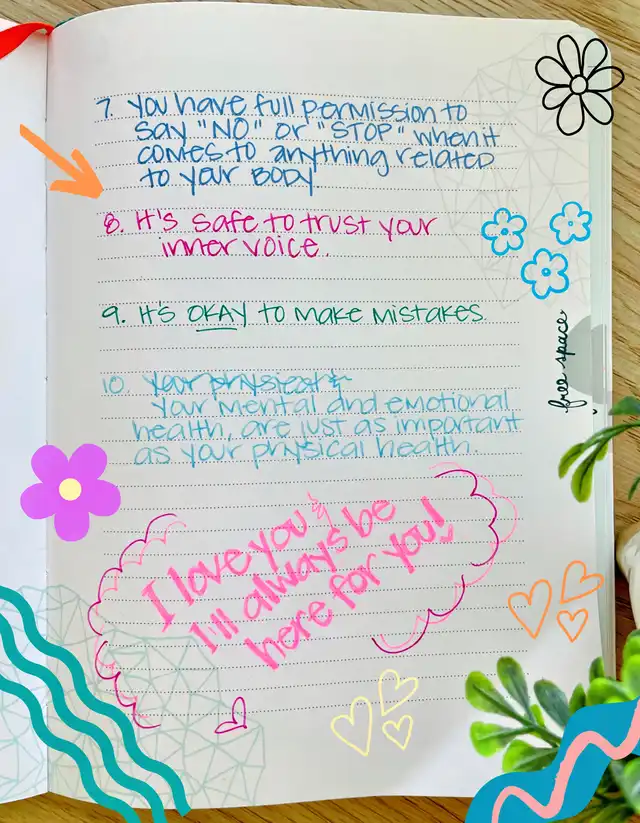 7. You have full permission to
say "NO" or "STOP" when it
comes to anything related
to your BODY
8. It's safe to trust your
inner voice.
9. It's OKAY to make mistakes.
10. Your physical &
Your mental and emotional
health, are just as important
as your physical health.
I love you &
I'll always be
here for you!
free space